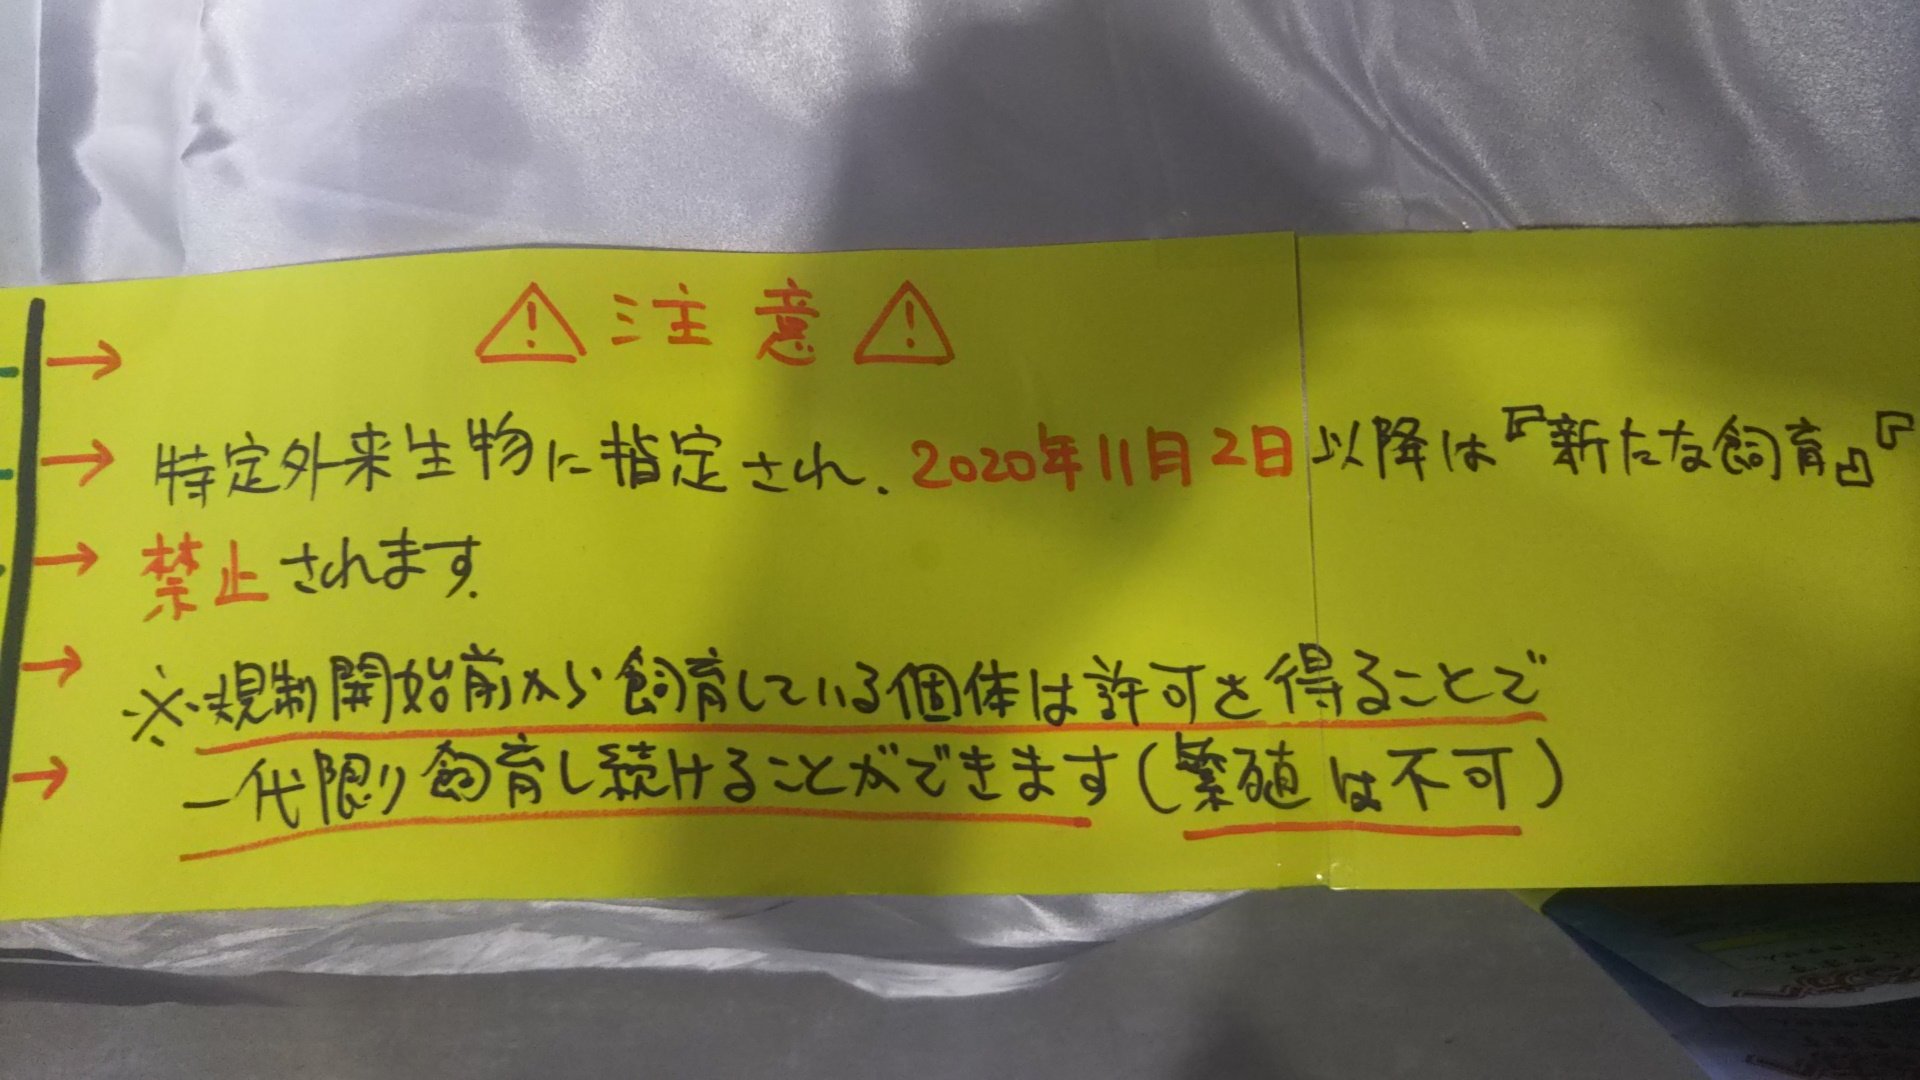 ⚠注意⚠
特定外来生物に指定され、2020年11月2日以降は『新たな飼育』『
禁止されます。
※規制開始前から飼育している個体は許可を得ることで
一代限り飼育し続けることができます(繁殖は不可)